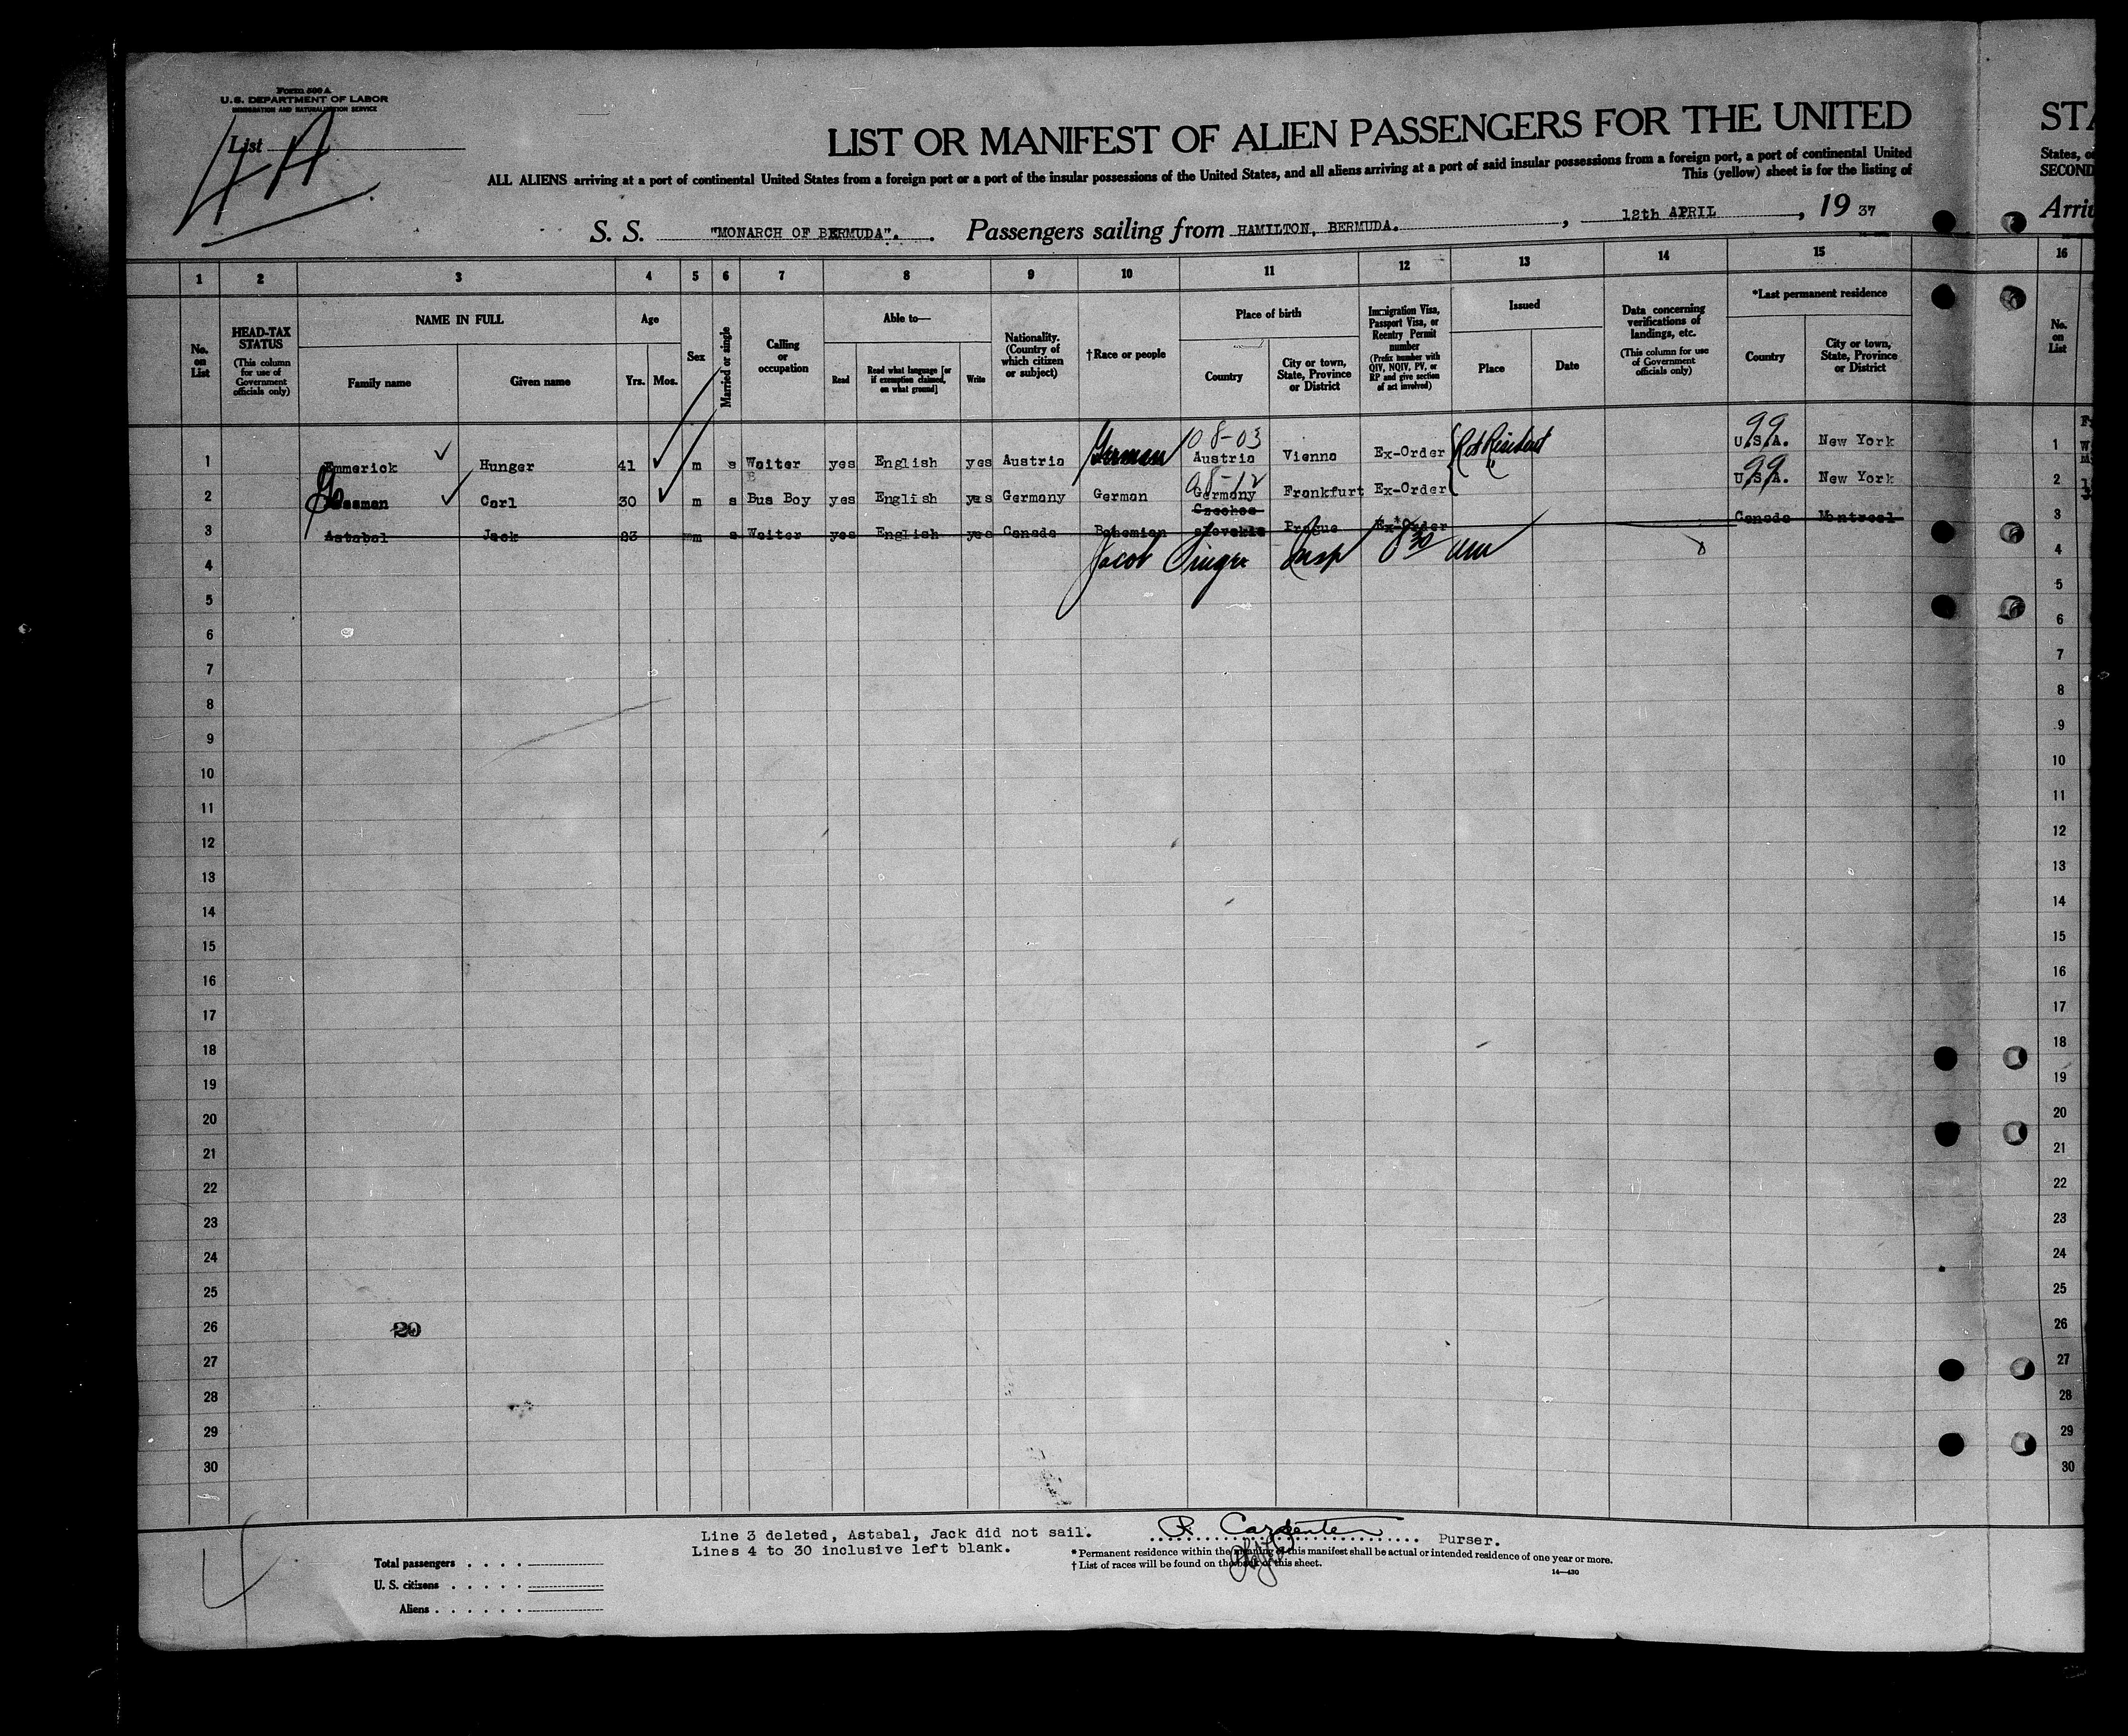 Form 500 A
U.S. DEPARTMENT OF LABOR
IMMIGRATION AND NATURALIZATION SERVICE
List 4A
LIST OR MANIFEST OF ALIEN PASSENGERS FOR THE UNITED
ALL ALIENS arriving at a port of continental United States from a foreign port or a port of the insular possessions of the United States, and all aliens arriving at a port of said insular possessions from a foreign port, a port of continental United
This (yellow) sheet is for the listing of
STA
States, o
SECOND
S. S. "MONARCH OF BERMUDA". Passengers sailing from HAMILTON, BERMUDA. , 12th APRIL , 19 37
Arri
1 2 3 4 5 6 7 8 9 10 11 12 13 14 15 16
No. on List
HEAD-TAX STATUS
(This column for use of Government officials only)
NAME IN FULL
Family name
Given name
Age
Yrs. Mos.
Sex
Married or single
Calling or occupation
Able to—
Read
Read what language [or if exemption claimed, on what ground]
Write
Nationality. (Country of which citizen or subject)
†Race or people
Place of birth
Country
City or town, State, Province or District
Immigration Visa, Passport Visa, or Reentry Permit number
(Prefix number with QIV, NQIV, PV, or RP and give section of act involved)
Issued
Place
Date
Data concerning verifications of landings, etc.
(This column for use of Government officials only)
*Last permanent residence
Country
City or town, State, Province or District
No. on List
08-03 99
1 Emmerick Hunger 41 m s Waiter yes English yes Austria German Austria Vienna Ex-Order Ret Resident U.S.A. New York 1
08-12 99
2 Carl 30 m s Bus Boy yes English yes Germany German Germany Frankfurt Ex-Order " U.S.A. New York 2
3 Astabal Jack 23 m s Waiter yes English yes Canada Bohemian Czechoslovakia Prague Ex-Order Canada Montreal 3
4 Jacob Singer Insp 8 30 am 4
5 5
6 6
7 7
8 8
9 9
10 10
11 11
12 12
13 13
14 14
15 15
16 16
17 17
18 18
19 19
20 20
21 21
22 22
23 23
24 24
25 25
26 20 26
27 27
28 28
29 29
30 30
Line 3 deleted, Astabal, Jack did not sail.
Lines 4 to 30 inclusive left blank.
R Carpenter Purser.
*Permanent residence within the meaning of this manifest shall be actual or intended residence of one year or more.
†List of races will be found on the back of this sheet.
14—430
4
Total passengers
U. S. citizens
Aliens